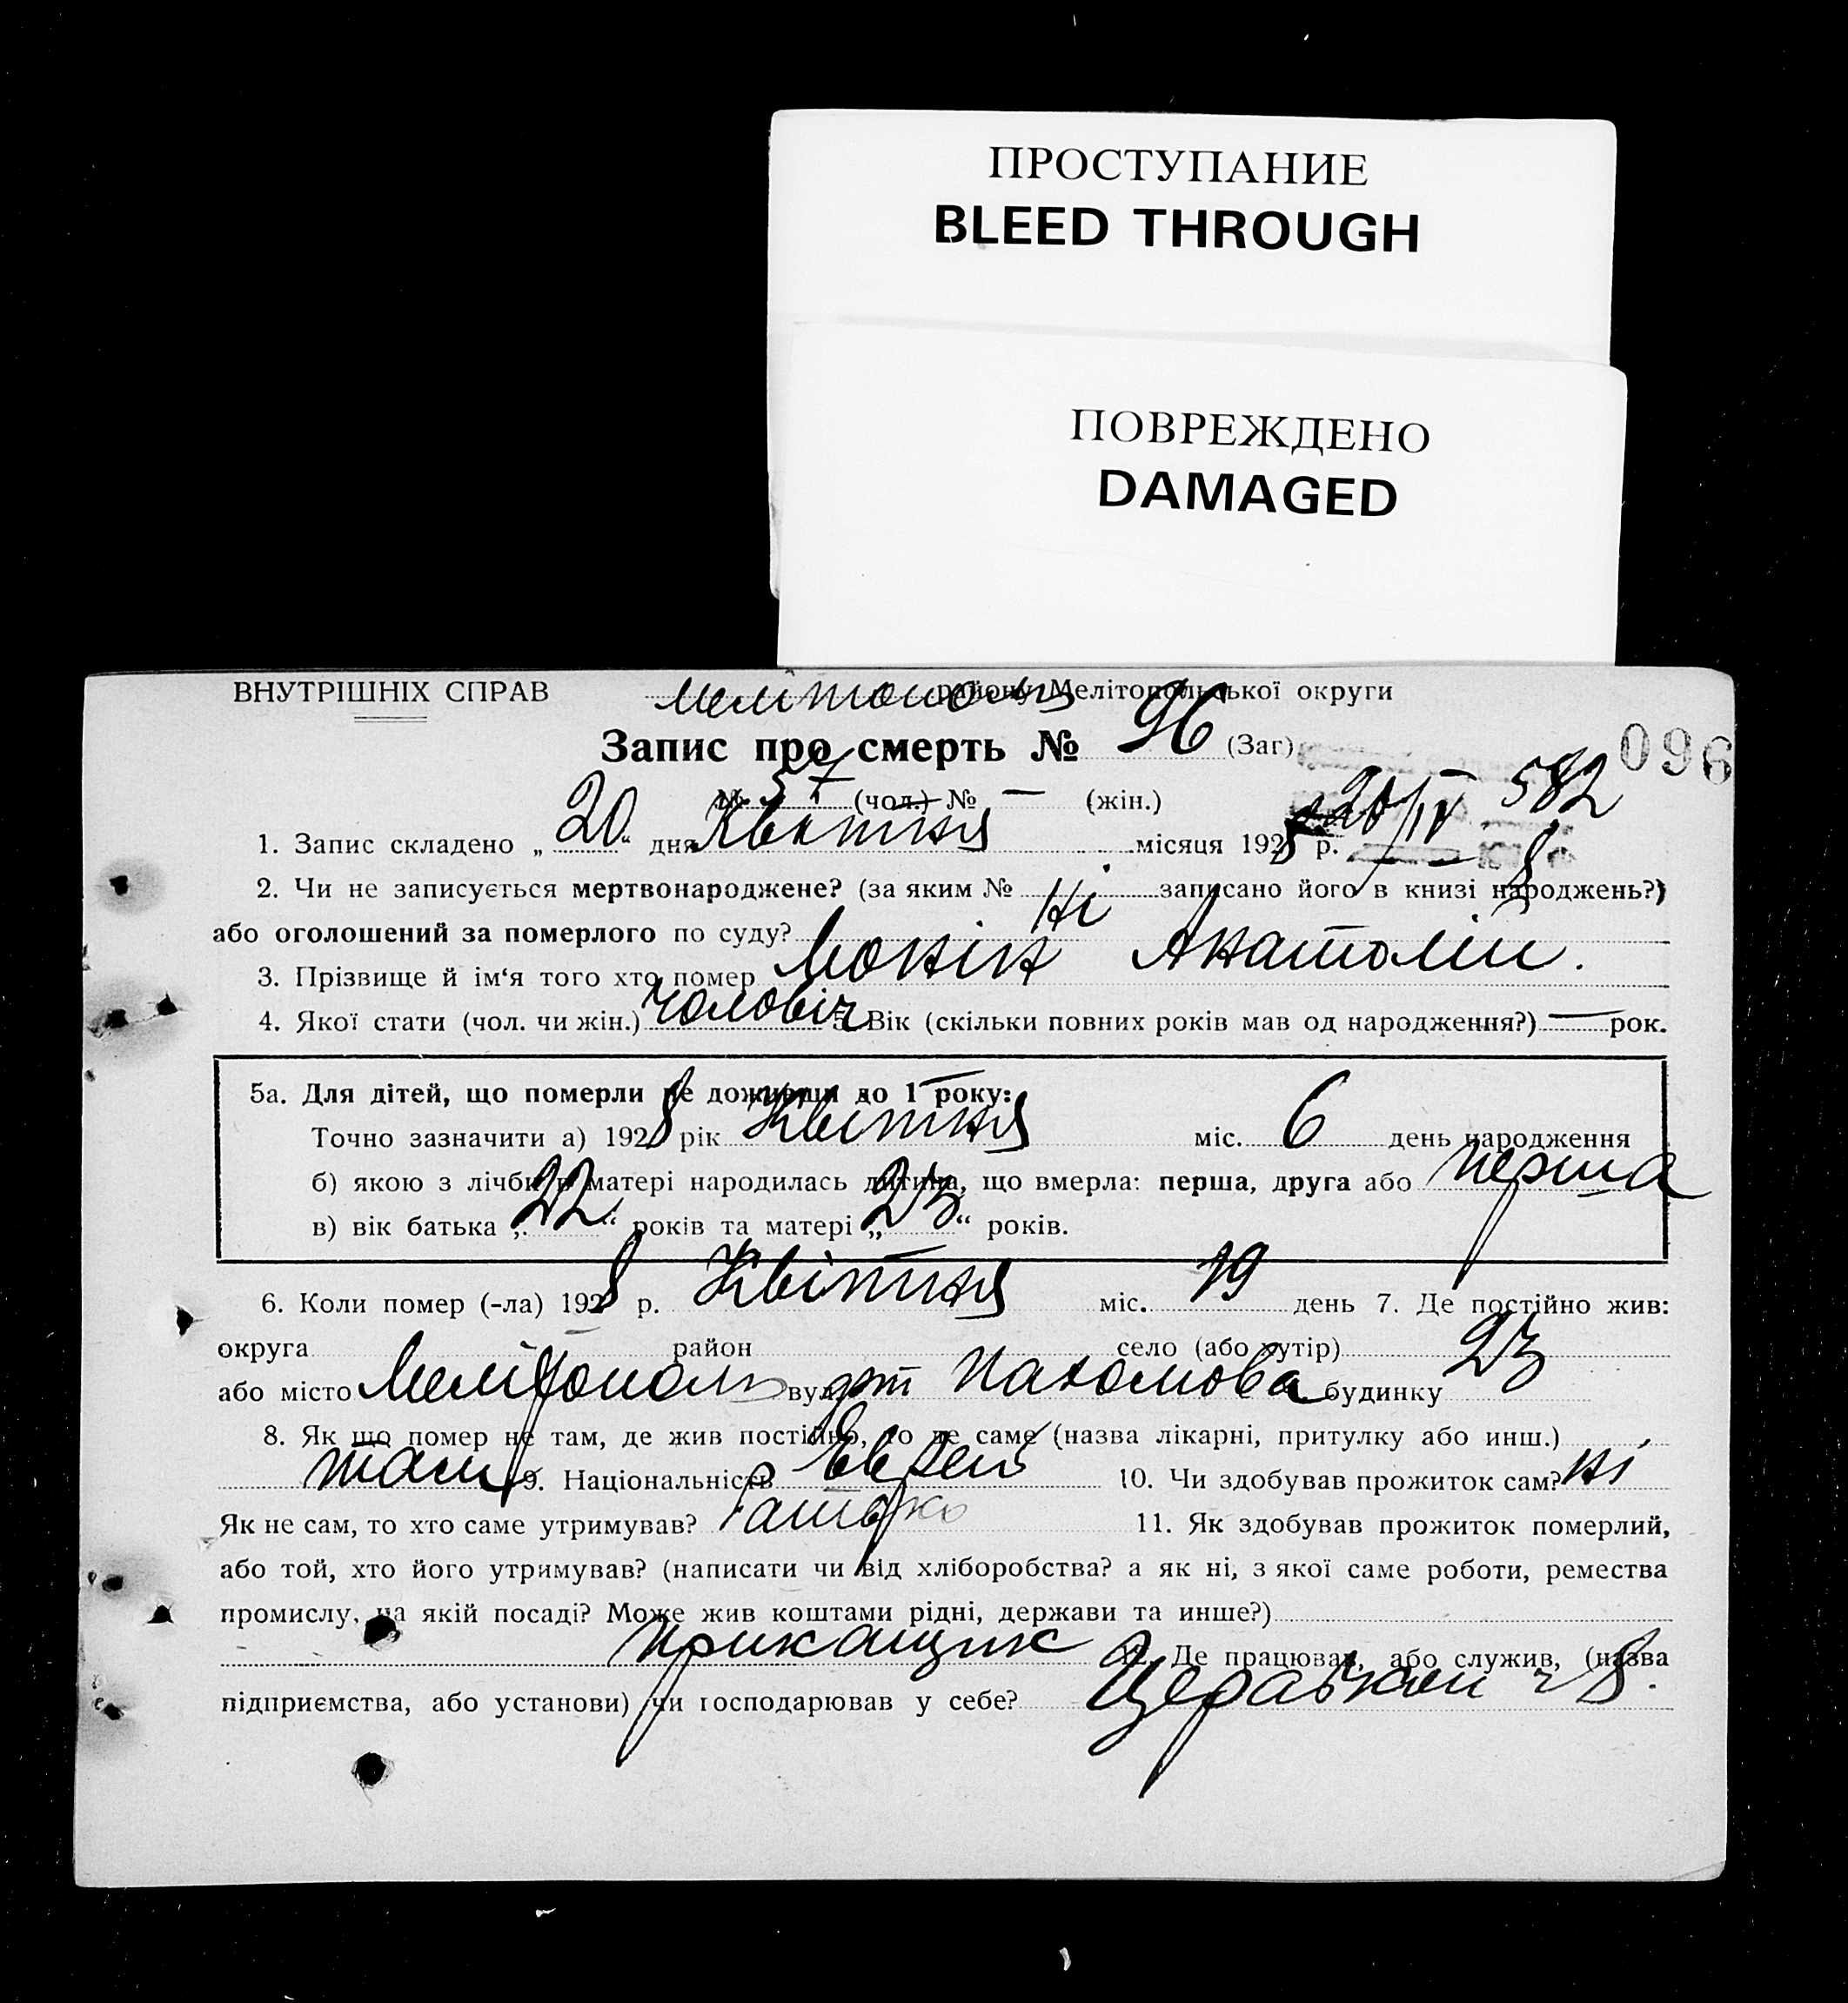 ПРОСТУПАНИЕ
BLEED THROUGH
ПОВРЕЖДЕНО
DAMAGED
ВНУТРІШНІХ СПРАВ Мелітополь району Мелітопольської округи
Запис про смерть № 96 (Заг) 096
№ 57 (чол.) № — (жін.) 20/IV 582
1. Запис складено „20“ дня Квітня місяця 1928 р. 8
2. Чи не записується мертвонароджене? (за яким № записано його в книзі народжень?)
або оголошений за померлого по суду? Ні
3. Прізвище й ім‘я того хто помер Анатолій.
4. Якої стати (чол. чи жін.) чоловіч 5. Вік (скільки повних років мав од народження?) — рок.
5а. Для дітей, що померли не доживши до 1 року:
Точно зазначити а) 1928 рік Квітня міс. 6 день народження
б) якою з лічби в матері народилась дитина, що вмерла: перша, друга або перша
в) вік батька „22“ років та матері „23“ років.
6. Коли помер (-ла) 1928 р. Квітня міс. 19 день 7. Де постійно жив:
округа район село (або хутір)
або місто Мелітополь вул. будинку 23
8. Як що помер не там, де жив постійно, то де саме (назва лікарні, притулку або инш.)
там 9. Національність Еврей 10. Чи здобував прожиток сам? ні
Як не сам, то хто саме утримував? батько 11. Як здобував прожиток померлий,
або той, хто його утримував? (написати чи від хліборобства? а як ні, з якої саме роботи, ремества
промислу, на якій посаді? Може жив коштами рідні, держави та инше?)
прикащик 12. Де працював, або служив, (назва
підприємства, або установи) чи господарював у себе? Церабкооп ч 8.